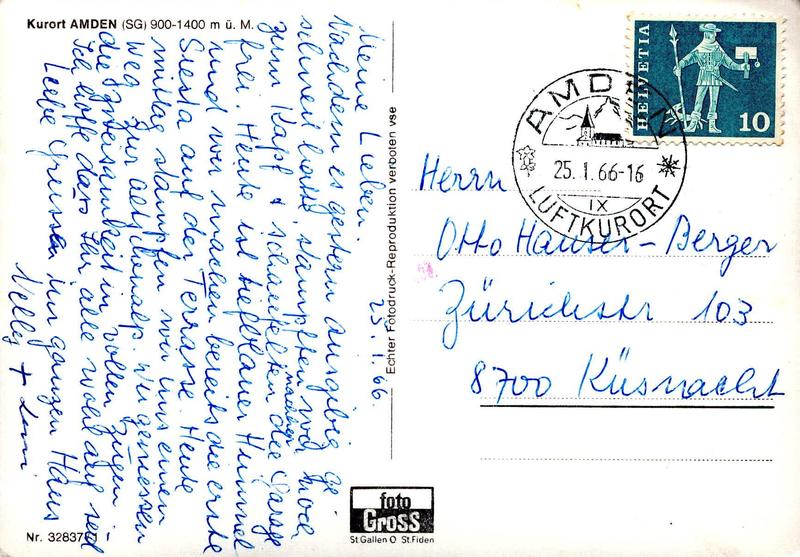 Kurort AMDEN (SG) 900-1400 m ü. M.
25.1.66.
Meine Lieben.
Nachdem es gestern ausgibig ge-
schneit hatte, stampften wir noch
zum Kapf + schaufelten nachher die Garage
frei. Heute ist tiefblauer Himmel
und wir machen bereits die erste
Siesta auf der Terrasse. Heute
mittag stampfen wir uns einen
weg zur Altschenalp. Wir geniessen
die Zweisamkeit in vollen Zügen!
Ich hoffe dass Ihr alle wohlauf seid
Liebe Grüsse im ganzen Haus
Nelly +
Nr. 3283
Echter Fotodruck-Reproduktion verboten vse
foto
Gross
St.Gallen O St.Fiden
HELVETIA
10
AMDEN
25.1.66-16
IX
LUFTKURORT
Herrn
Otto Hauser-Berger
Zürichstr 103
8700 Küsnacht